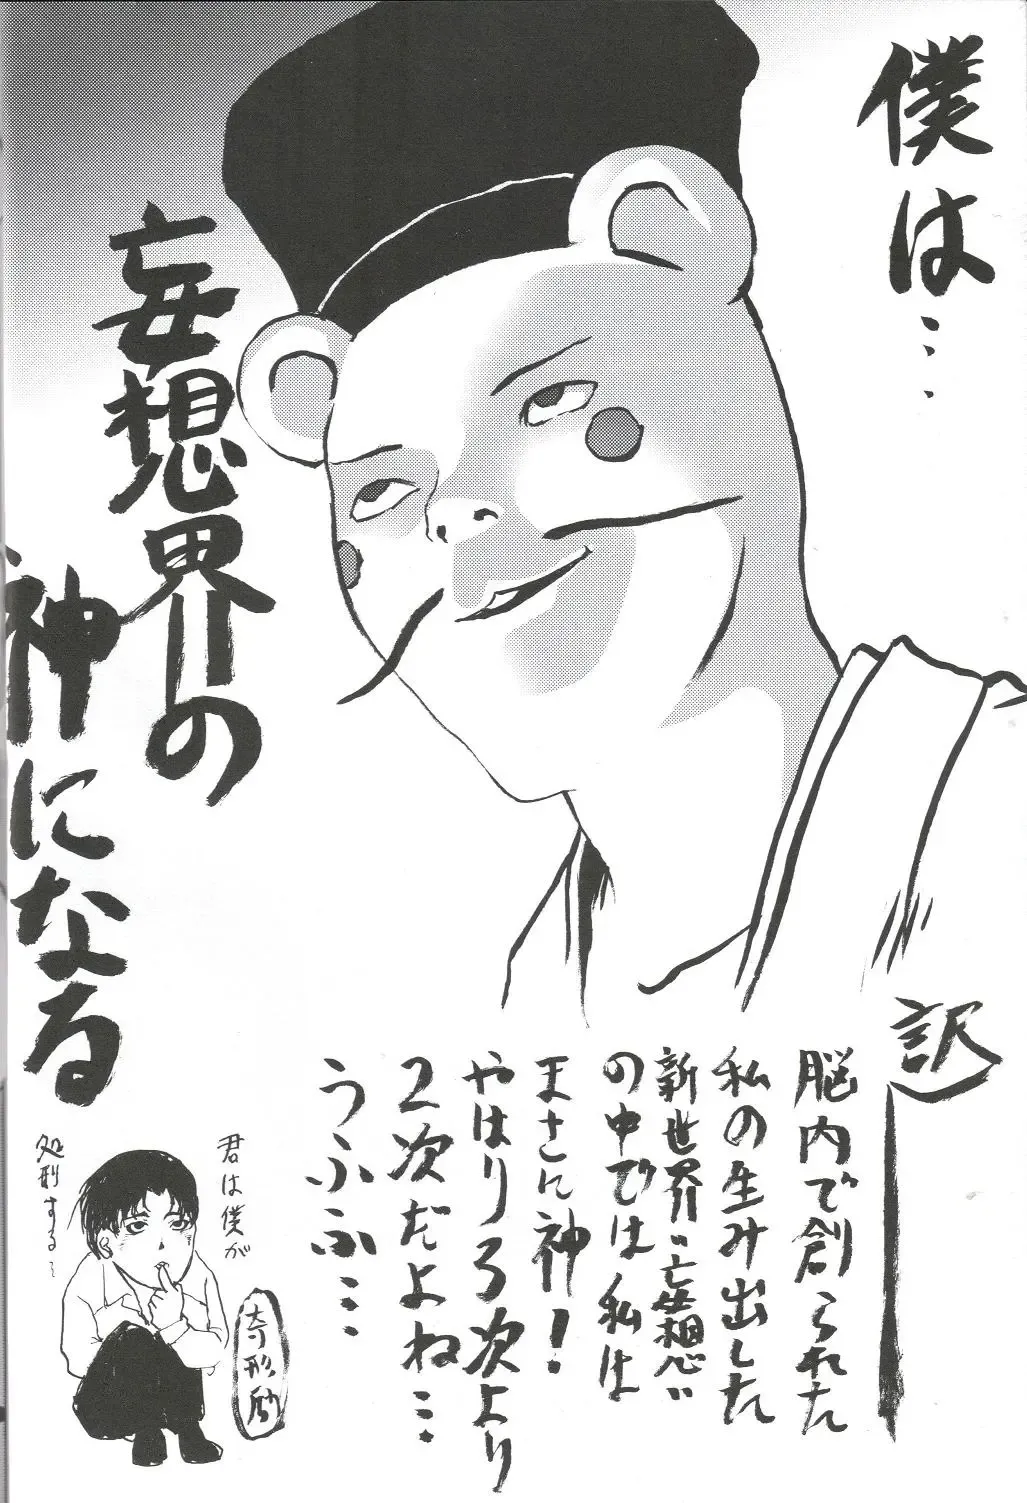 僕は…
妄想界の
神になる
訳
脳内で創られた
私の生み出した
新世界"妄想"
の中では私は
まさに神!
やはり3次より
2次だよね…
うふふ…
君は僕が
処刑する…
奇形